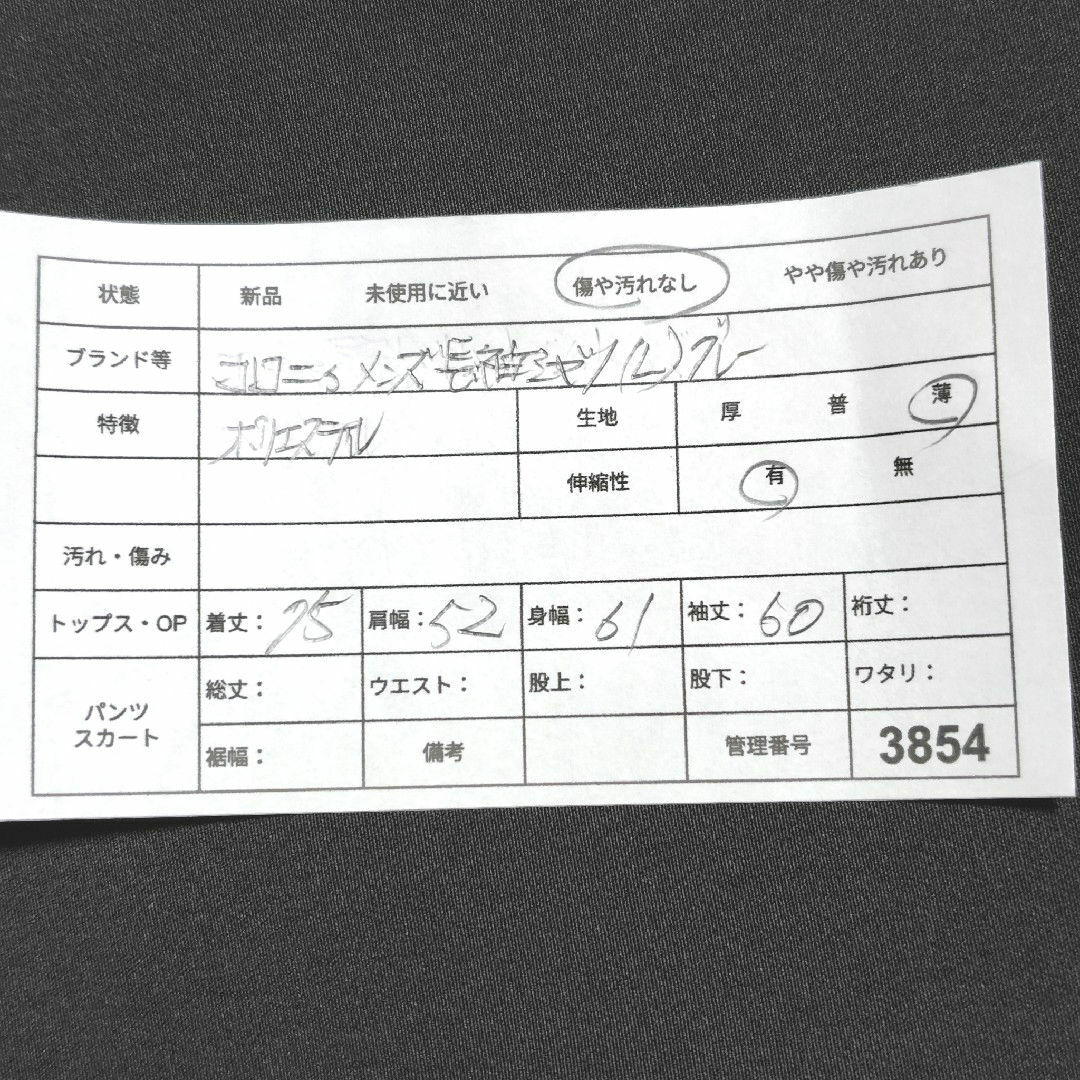 状態 新品 未使用に近い 傷や汚れなし やや傷や汚れあり
ブランド等 メンズ長袖シャツ(L)グレー
特徴 ポリエステル 生地 厚 普 薄
伸縮性 有 無
汚れ・傷み
トップス・OP 着丈: 75 肩幅: 52 身幅: 61 袖丈: 60 裄丈:
パンツ
スカート
総丈: ウエスト: 股上: 股下: ワタリ:
裾幅: 備考 管理番号 3854